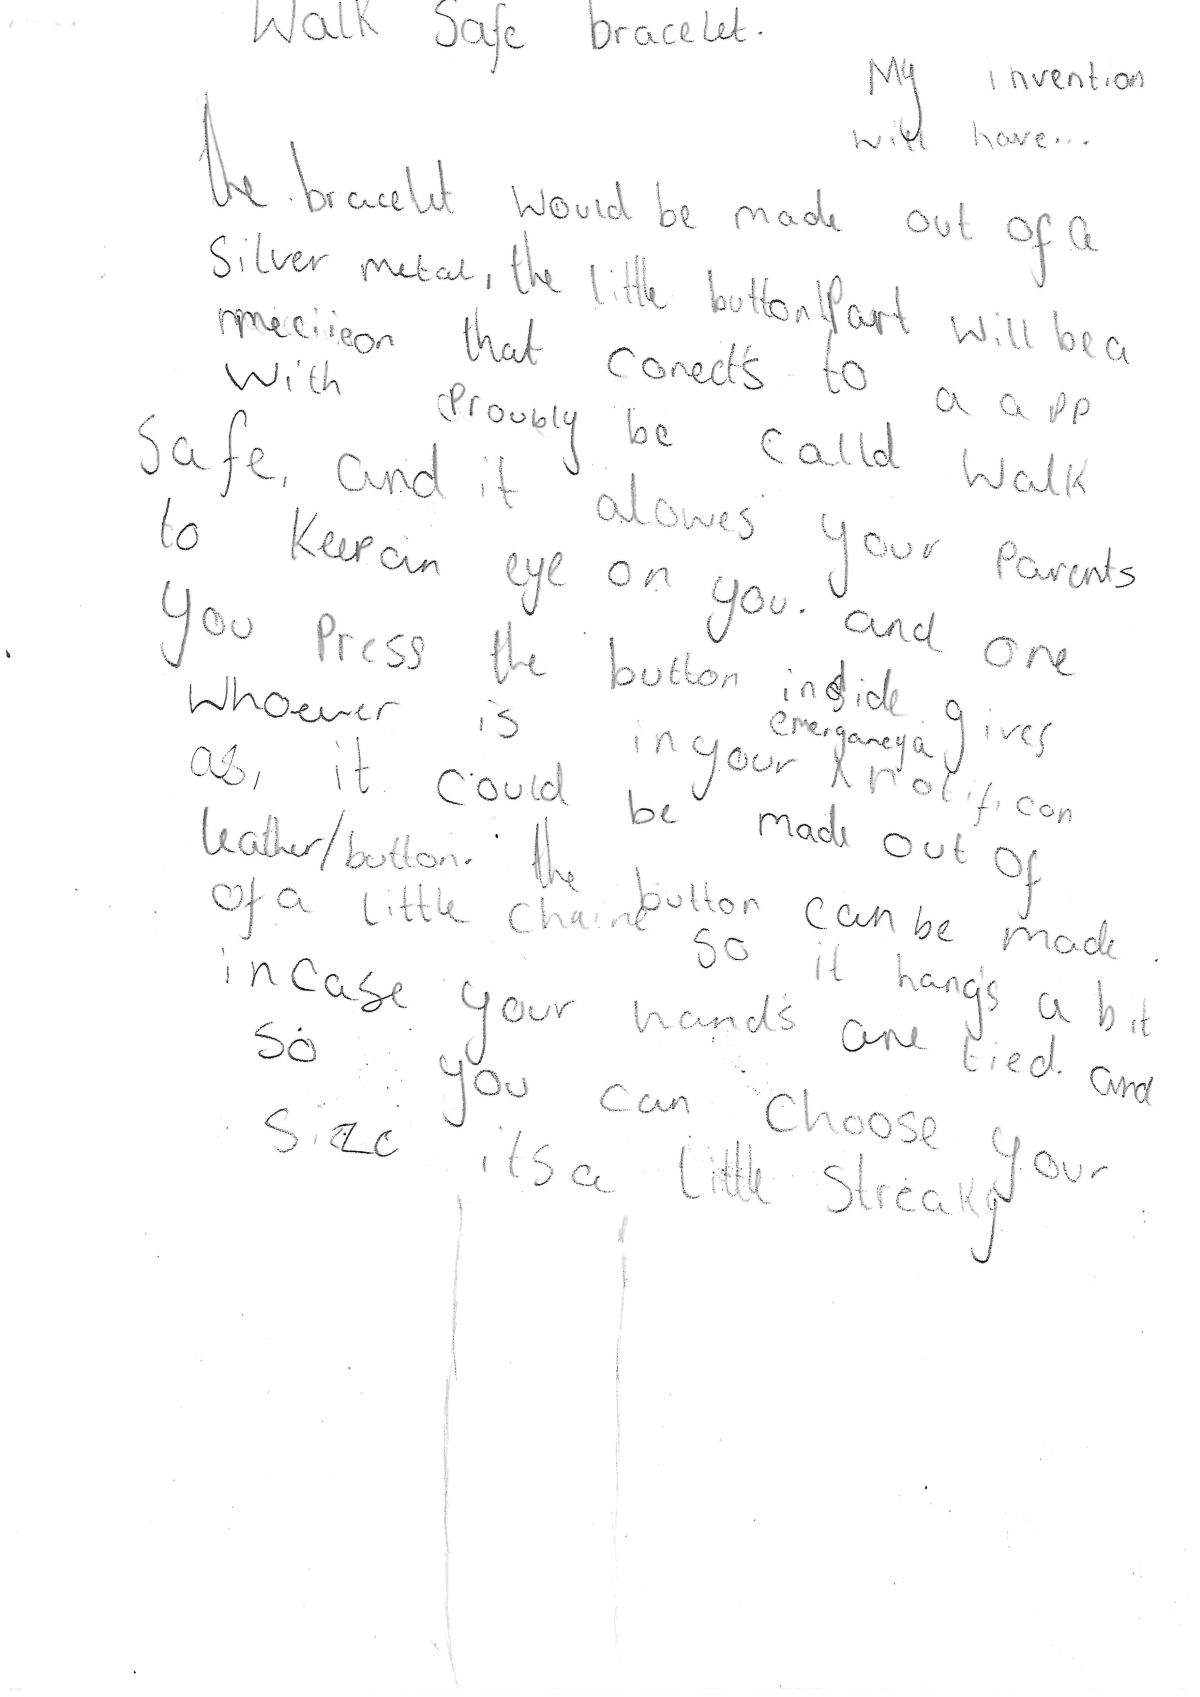 Walk Safe bracelet.
My invention
will have...
the bracelet would be made out of a
Silver metal, the little button Part will be a
that conect's to a app
With proubly be calld Walk
Safe, and it alowes your Parents
to Keep an eye on you. and one
you Press the button inside gives
whoever is in your emerganeya notificon
as, it could be made out of
leather/button. the button can be made
of a little chaine so it hang's a bit
incase your hand's are tied. and
so you can choose your
size its a little Streaky